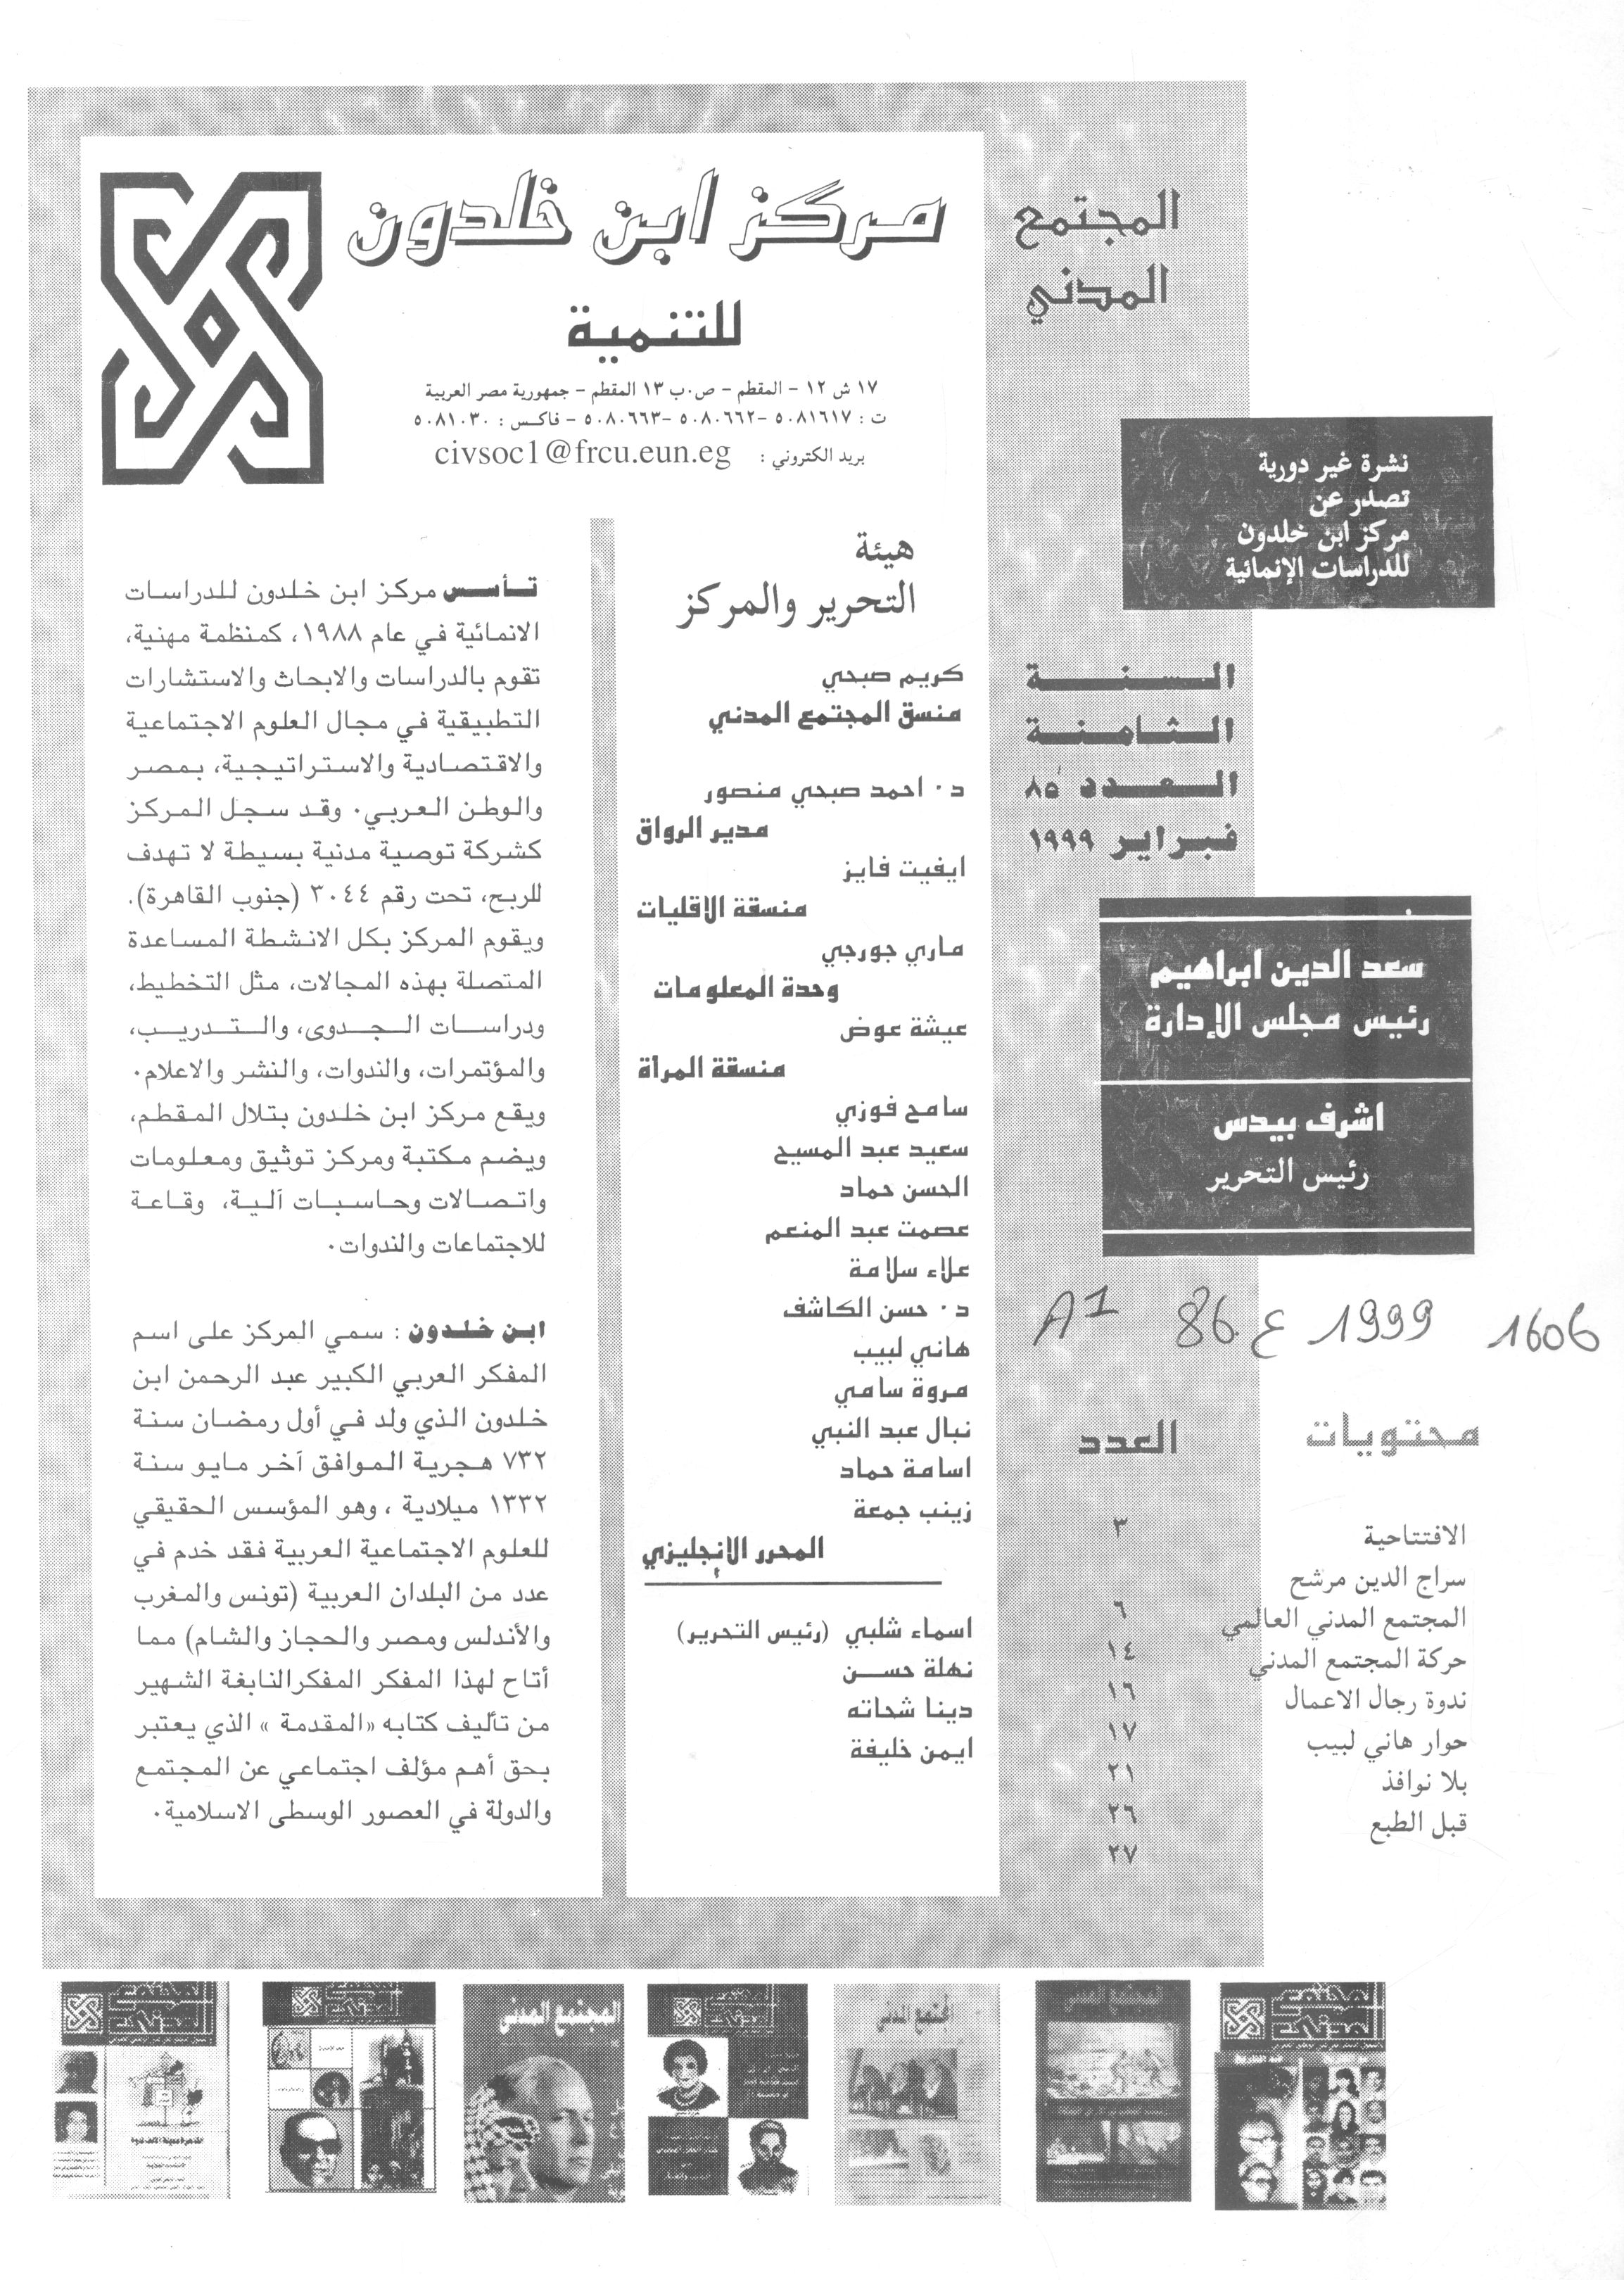 المجتمع
المدني
نشرة غير دورية
تصدر عن
مركز ابن خلدون
للدراسات الإنمائية
السنة
الثامنة
العدد ٨٥
فبراير ١٩٩٩
سعد الدين ابراهيم
رئيس مجلس الإدارة
اشرف بيدس
رئيس التحرير
A1 86 ع 1999 1606
محتويات العدد
الافتتاحية ٣
سراج الدين مرشح
المجتمع المدني العالمي ٦
حركة المجتمع المدني ١٤
ندوة رجال الاعمال ١٦
حوار هاني لبيب ١٧
بلا نوافذ ٢١
قبل الطبع ٢٦
٢٧
مركز ابن خلدون
للتنمية
١٧ ش ١٢ - المقطم - ص.ب ١٣ المقطم - جمهورية مصر العربية
ت : ٥٠٨١٦١٧ -٥٠٨٠٦٦٢ -٥٠٨٠٦٦٣ - فاكس : ٥٠٨١٠٣٠
بريد الكتروني : civsoc1@frcu.eun.eg
هيئة
التحرير والمركز
كريم صبحي
منسق المجتمع المدني
د. احمد صبحي منصور
مدير الرواق
ايفيت فايز
منسقة الاقليات
ماري جورجي
وحدة المعلومات
عيشة عوض
منسقة المرأة
سامح فوزي
سعيد عبد المسيح
الحسن حماد
عصمت عبد المنعم
علاء سلامة
د. حسن الكاشف
هاني لبيب
مروة سامي
نبال عبد النبي
اسامة حماد
زينب جمعة
المحرر الإنجليزي
اسماء شلبي (رئيس التحرير)
نهلة حسن
دينا شحاته
ايمن خليفة
تأسس مركز ابن خلدون للدراسات
الانمائية في عام ١٩٨٨، كمنظمة مهنية،
تقوم بالدراسات والابحاث والاستشارات
التطبيقية في مجال العلوم الاجتماعية
والاقتصادية والاستراتيجية، بمصر
والوطن العربي. وقد سجل المركز
كشركة توصية مدنية بسيطة لا تهدف
للربح، تحت رقم ٣٠٤٤ (جنوب القاهرة).
ويقوم المركز بكل الانشطة المساعدة
المتصلة بهذه المجالات، مثل التخطيط،
ودراسات الجدوى، والتدريب،
والمؤتمرات، والندوات، والنشر والاعلام.
ويقع مركز ابن خلدون بتلال المقطم،
ويضم مكتبة ومركز توثيق ومعلومات
واتصالات وحاسبات آلية، وقاعة
للاجتماعات والندوات.
ابن خلدون : سمي المركز على اسم
المفكر العربي الكبير عبد الرحمن ابن
خلدون الذي ولد في أول رمضان سنة
٧٣٢ هجرية الموافق آخر مايو سنة
١٣٣٢ ميلادية ، وهو المؤسس الحقيقي
للعلوم الاجتماعية العربية فقد خدم في
عدد من البلدان العربية (تونس والمغرب
والأندلس ومصر والحجاز والشام) مما
أتاح لهذا المفكر المفكرالنابغة الشهير
من تأليف كتابه «المقدمة » الذي يعتبر
بحق أهم مؤلف اجتماعي عن المجتمع
والدولة في العصور الوسطى الاسلامية.
المجتمع المدني
المجتمع المدني
المجتمع المدني
المجتمع المدني
المجتمع المدني
المجتمع المدني
المجتمع المدني